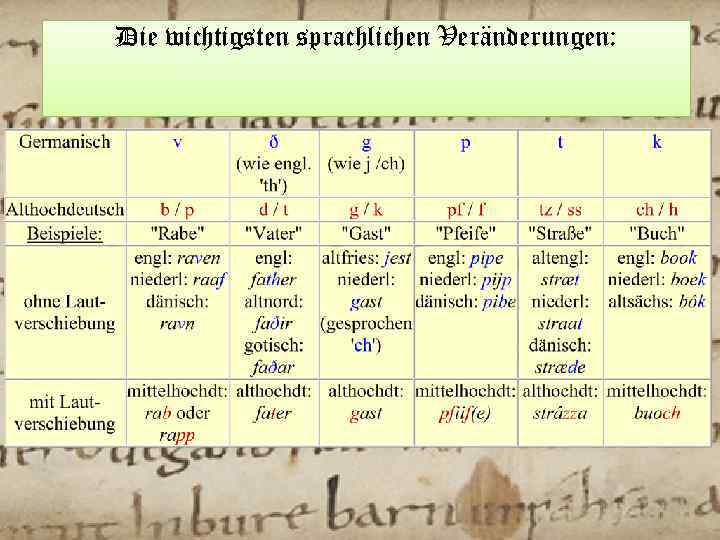 Die wichtigsten sprachlichen Veränderungen:
Germanisch v ð g p t k
(wie engl. 'th') (wie j /ch)
Althochdeutsch b / p d / t g / k pf / f tz / ss ch / h
Beispiele: "Rabe" "Vater" "Gast" "Pfeife" "Straße" "Buch"
ohne Laut-
verschiebung
engl: raven
niederl: raaf
dänisch:
ravn
engl:
father
altnord:
faðir
gotisch:
faðar
altfries: jest
niederl:
gast
(gesprochen
'ch')
engl: pipe
niederl: pijp
dänisch: pibe
altengl:
stræt
niederl:
straat
dänisch:
stræde
engl: book
niederl: boek
altsächs: bôk
mit Laut-
verschiebung
mittelhochdt:
rab oder
rapp
althochdt:
fater
althochdt:
gast
mittelhochdt:
pfîf(e)
althochdt:
strâzza
mittelhochdt:
buoch